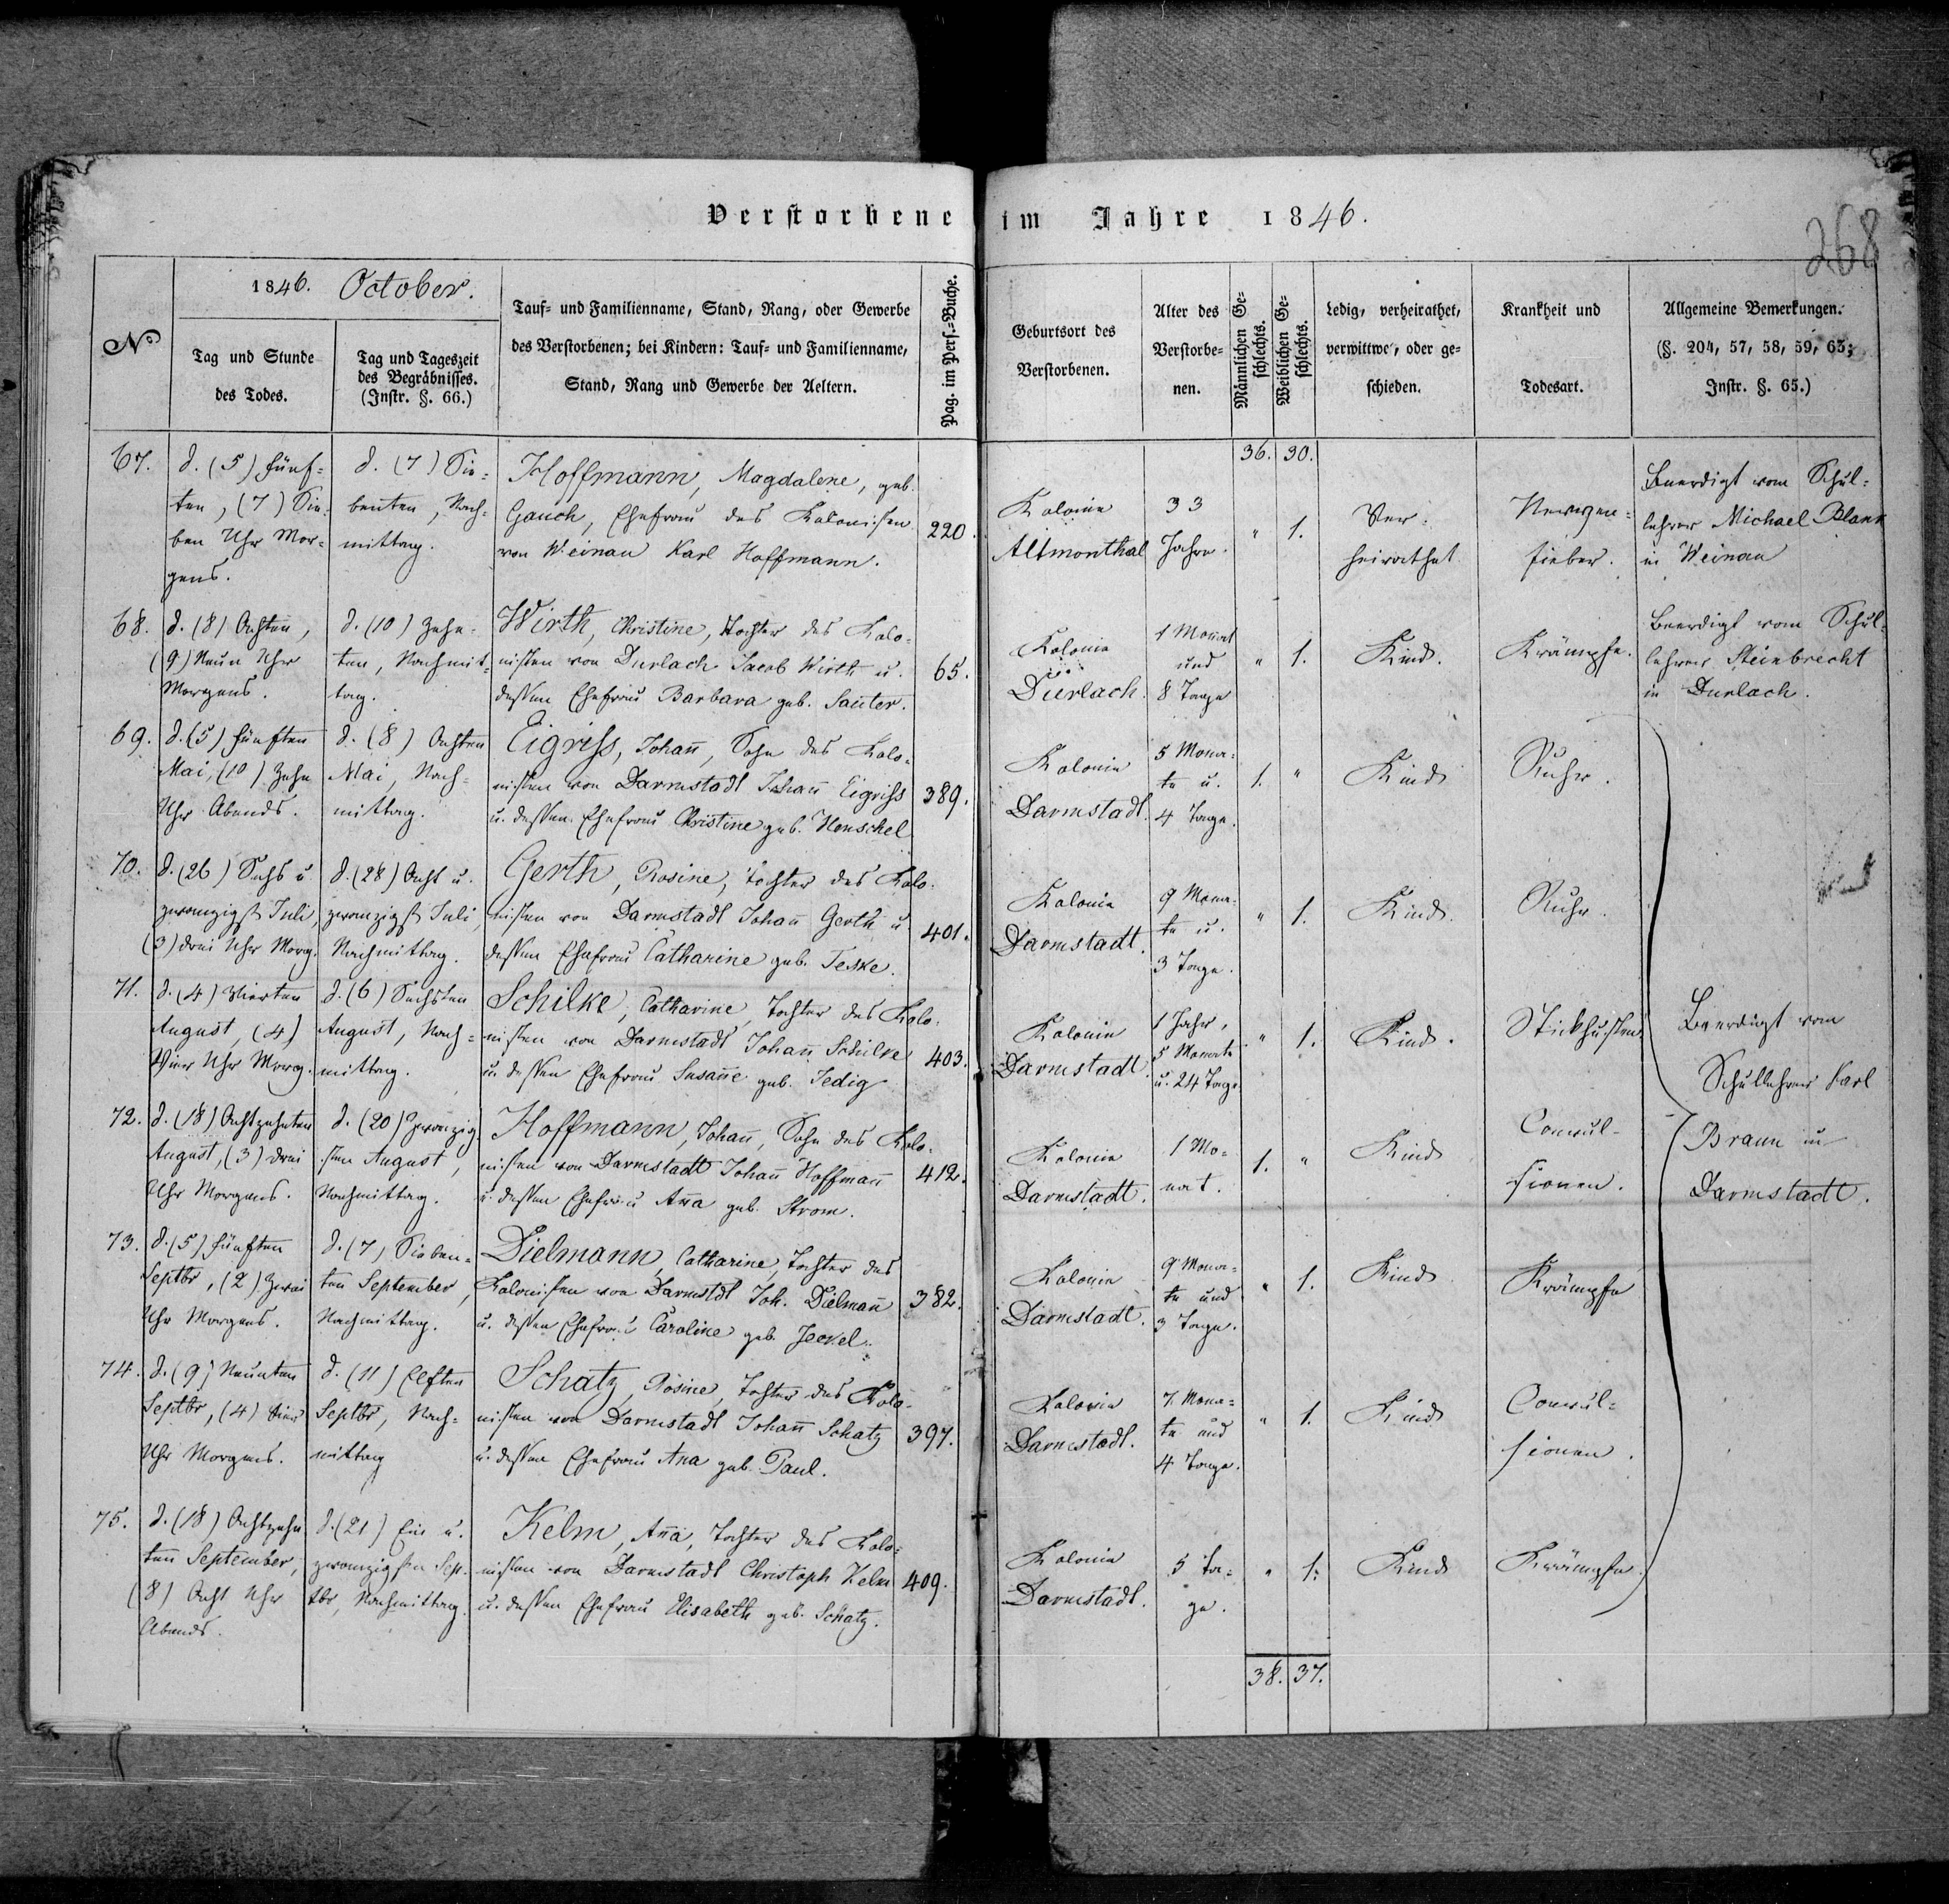 Verstorbene im Jahre 1846.
268
No
1846. October.
Tag und Stunde
des Todes.
Tag und Tageszeit
des Begräbnisses.
(Instr. §. 66.)
Tauf- und Familienname, Stand, Rang, oder Gewerbe
des Verstorbenen; bei Kindern: Tauf- und Familienname,
Stand, Rang und Gewerbe der Aeltern.
Pag. im Pers.-Buche.
Geburtsort des
Verstorbenen.
Alter des
Verstorbe-
nen.
Männlichen Ge-
schlechts.
Weiblichen Ge-
schlechts.
Ledig, verheirathet,
verwittwe, oder ge-
schieden.
Krankheit und
Todesart.
Allgemeine Bemerkungen.
(§. 204, 57, 58, 59, 63;
Instr. §. 65.)
36. 30.
67.
d. (5) fünf-
ten, (7) Sie-
ben Uhr Mor-
gens.
d. (7) Sie-
benten, Nach-
mittag.
Hoffmann, Magdalene, geb.
Gauch, Ehefrau des Kolonisten
von Weinau Karl Hoffmann.
220.
Kolonie
Altmonthal
33
Jahre.
" 1.
Ver-
heirathet
Nerven-
fieber.
Beerdigt vom Schul-
lehrer Michael Blank
in Weinau
68.
d. (8) Achten,
(9) Neun Uhr
Morgens.
d. (10) Zehn-
ten, Nachmit-
tag.
Wirth, Christine, Tochter des Kolo-
nisten von Durlach Jacob Wirth u.
dessen Ehefrau Barbara geb. Sauter.
65.
Kolonie
Durlach.
1 Monat
und
8 Tage
" 1.
Kind.
Krämpfe.
Beerdigt vom Schul-
lehrer Steinbrecht
in Durlach.
69.
d. (5) fünften
Mai, (10) Zehn
Uhr Abends.
d. (8) Achten
Mai, Nach-
mittag.
Eigriss, Johann, Sohn des Kolo-
nisten von Darmstadt Johann Eigriss
u. dessen Ehefrau Christine geb. Henschel
389.
Kolonie
Darmstadt.
5 Mona-
te u.
4 Tage.
1. "
Kind
Ruhr.
70.
d. (26) Sechs u
zwanzigst Juli,
(3) drei Uhr Morg.
d. (28) Acht u.
zwanzigst Juli
Nachmittag.
Gerth, Rosine, Tochter des Kolo-
nisten von Darmstadt Johann Gerth u
dessen Ehefrau Catharine geb. Teske.
401.
Kolonie
Darmstadt.
9 Mona-
te u.
3 Tage.
" 1.
Kind.
Ruhr.
71.
d. (4) Vierten
August, (4)
Vier Uhr Morg.
d. (6) Sechsten
August, Nach-
mittag.
Schilke, Catharine, Tochter des Kolo-
nisten von Darmstadt Johann Schilke
u. dessen Ehefrau Susanne geb. Jedig
403.
Kolonie
Darmstadt
1 Jahr,
5 Monate
u. 24 Tage
" 1.
Kind.
Stickhusten
Beerdigt vom
Schullehrer Karl
Braun in
Darmstadt.
72.
d. (18) Achtzehnten
August, (3) drei
Uhr Morgens.
d. (20) Zwanzig-
sten August,
Nachmittag.
Hoffmann, Johann, Sohn des Kolo-
nisten von Darmstadt Johann Hoffmann
u. dessen Ehefrau Anna geb. Strom.
412.
Kolonie
Darmstadt.
1 Mo-
nat.
1. "
Kind
Convul-
sionen.
73.
d. (5) fünften
Septbr, (2) Zwei
Uhr Morgens.
d. (7) Sieben-
ten September,
Nachmittag.
Dielmann, Catharine, Tochter des
Kolonisten von Darmstdt Joh. Dielmann
u. dessen Ehefrau Caroline geb. Jeckel.
382.
Kolonie
Darmstadt.
9 Mona-
te und
3 Tage.
" 1.
Kind
Krämpfe
74.
d. (9) Neunten
Septbr, (4) Vier
Uhr Morgens.
d. (11) Elften
Septbr, Nach-
mittag
Schatz, Rosine, Tochter des Kolo-
nisten von Darmstadt Johann Schatz
u. dessen Ehefrau Anna geb. Paul.
397.
Kolonie
Darmstadt.
7 Mona-
te und
4 Tage.
" 1.
Kind
Convul-
sionen.
75.
d. (18) Achtzehn
ten September,
(8) Acht Uhr
Abends.
d. (21) Ein u.
zwanzigsten Sep-
tbr, Nachmittag.
Kelm, Anna, Tochter des Kolo-
nisten von Darmstadt Christoph Kelm
u. dessen Ehefrau Elisabeth geb. Schatz.
409.
Kolonie
Darmstadt.
5 Ta-
ge.
" 1.
Kind
Krämpfe.
38. 37.